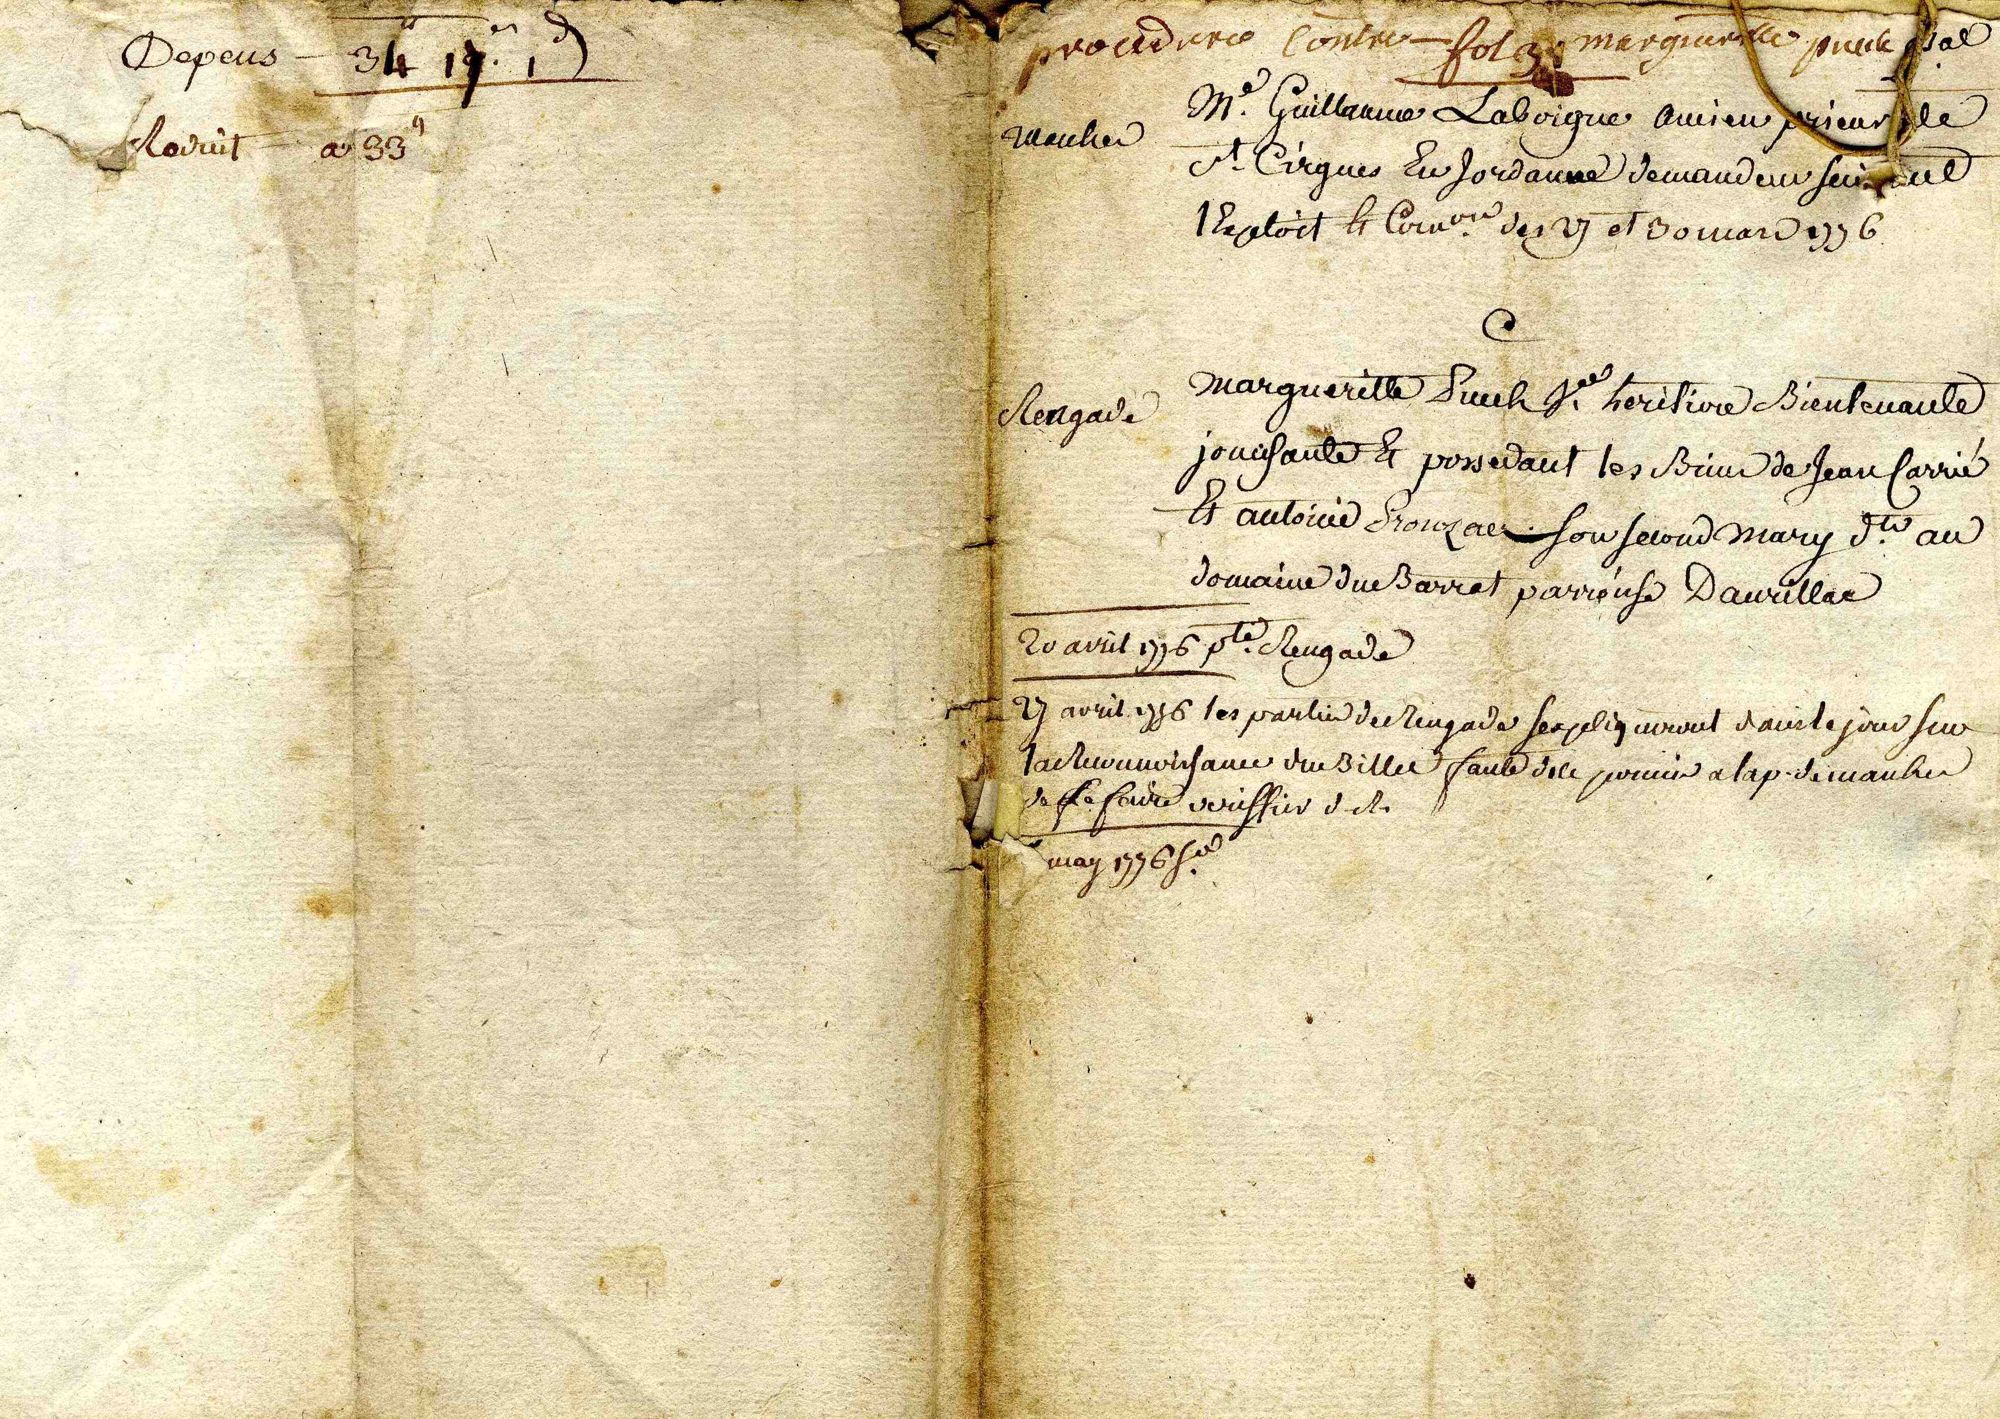 Depens – 34ᵗᵗ 19.ˢ 1ᵈ
Reduit – a 33ᵗᵗ
procedure Contre – fol 3 marguerite pueh
Mᵉ. Guillaume Laboigue ancien prieur de
manhes
St. Cirgues En Jordanne demandeur suivant
l'Exploit Et Con.ᵒˡᵉ des 27 et 30 mars 1776
C
Margueritte Pueh Vᵉ. heritiere Bientenante
Rengade
jouissante Et possedant les Biens de Jean Carrié
Et antoine son second mary d.ᵗ au
domaine du Barrat parroisse Daurillac
20 avril 1776 pᵗᵉ. Rengade
27 avril 1776 les parties de Rengade sexpliqueront dans le jour sur
la Reconnoissance du Billet faute de ce permis a la p. de manhes
de le faire veriffier d. R.
may 1776